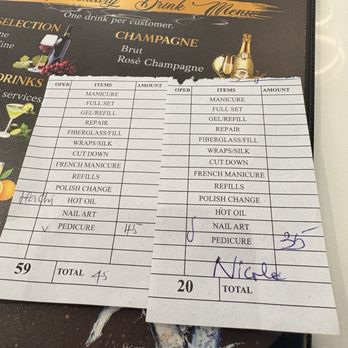 Drink Menu
One drink per customer.
SELECTION
CHAMPAGNE
Brut
Rosé Champagne
DRINKS
services
OPER ITEMS AMOUNT
MANICURE
FULL SET
GEL/REFILL
REPAIR
FIBERGLASS/FILL
WRAPS/SILK
CUT DOWN
FRENCH MANICURE
REFILLS
POLISH CHANGE
HOT OIL
NAIL ART
PEDICURE 45
59 TOTAL 45
OPER ITEMS AMOUNT
MANICURE
FULL SET
GEL/REFILL
REPAIR
FIBERGLASS/FILL
WRAPS/SILK
CUT DOWN
FRENCH MANICURE
REFILLS
POLISH CHANGE
HOT OIL
NAIL ART
PEDICURE 35
Nicole
20 TOTAL